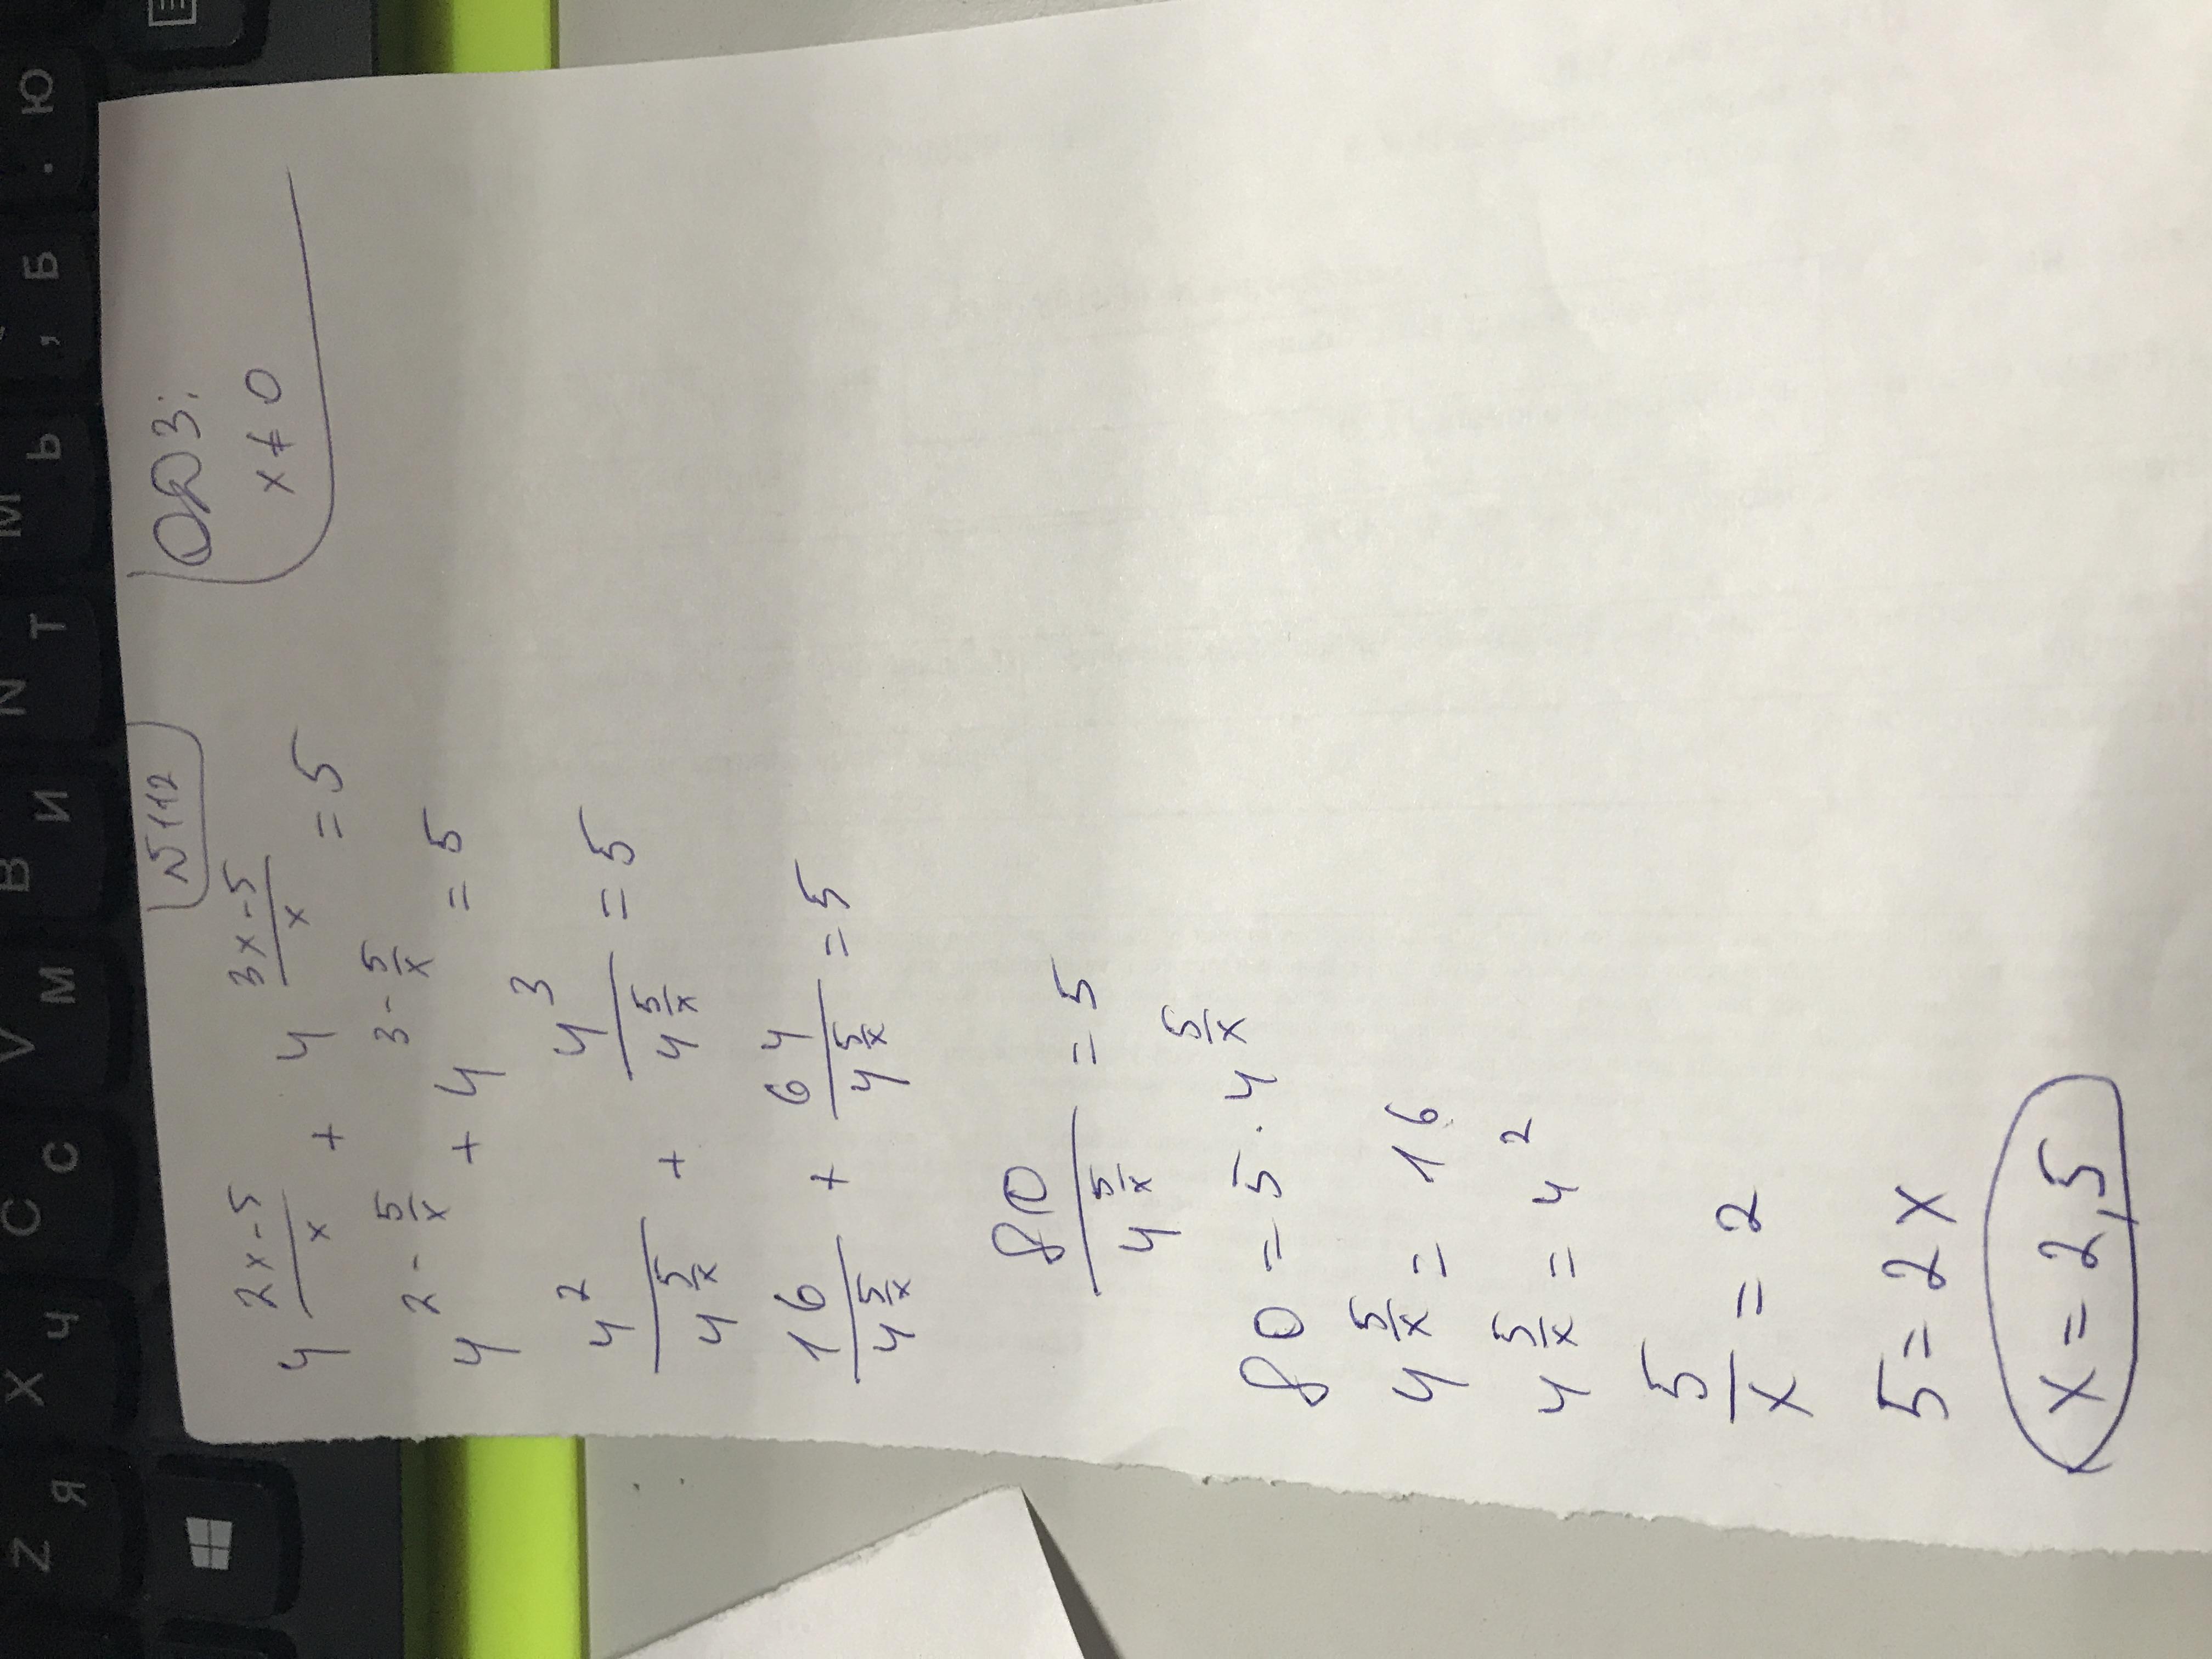 N112
ОДЗ:
x ≠ 0
4^((2x-5)/x) + 4^((3x-5)/x) = 5
4^(2-5/x) + 4^(3-5/x) = 5
4^2/4^(5/x) + 4^3/4^(5/x) = 5
16/4^(5/x) + 64/4^(5/x) = 5
80/4^(5/x) = 5
80 = 5 · 4^(5/x)
4^(5/x) = 16
4^(5/x) = 4^2
5/x = 2
5 = 2x
x = 2,5
Z Я
X Ч
C С
V М
B И
N Т
M Ь
, Б
. Ю